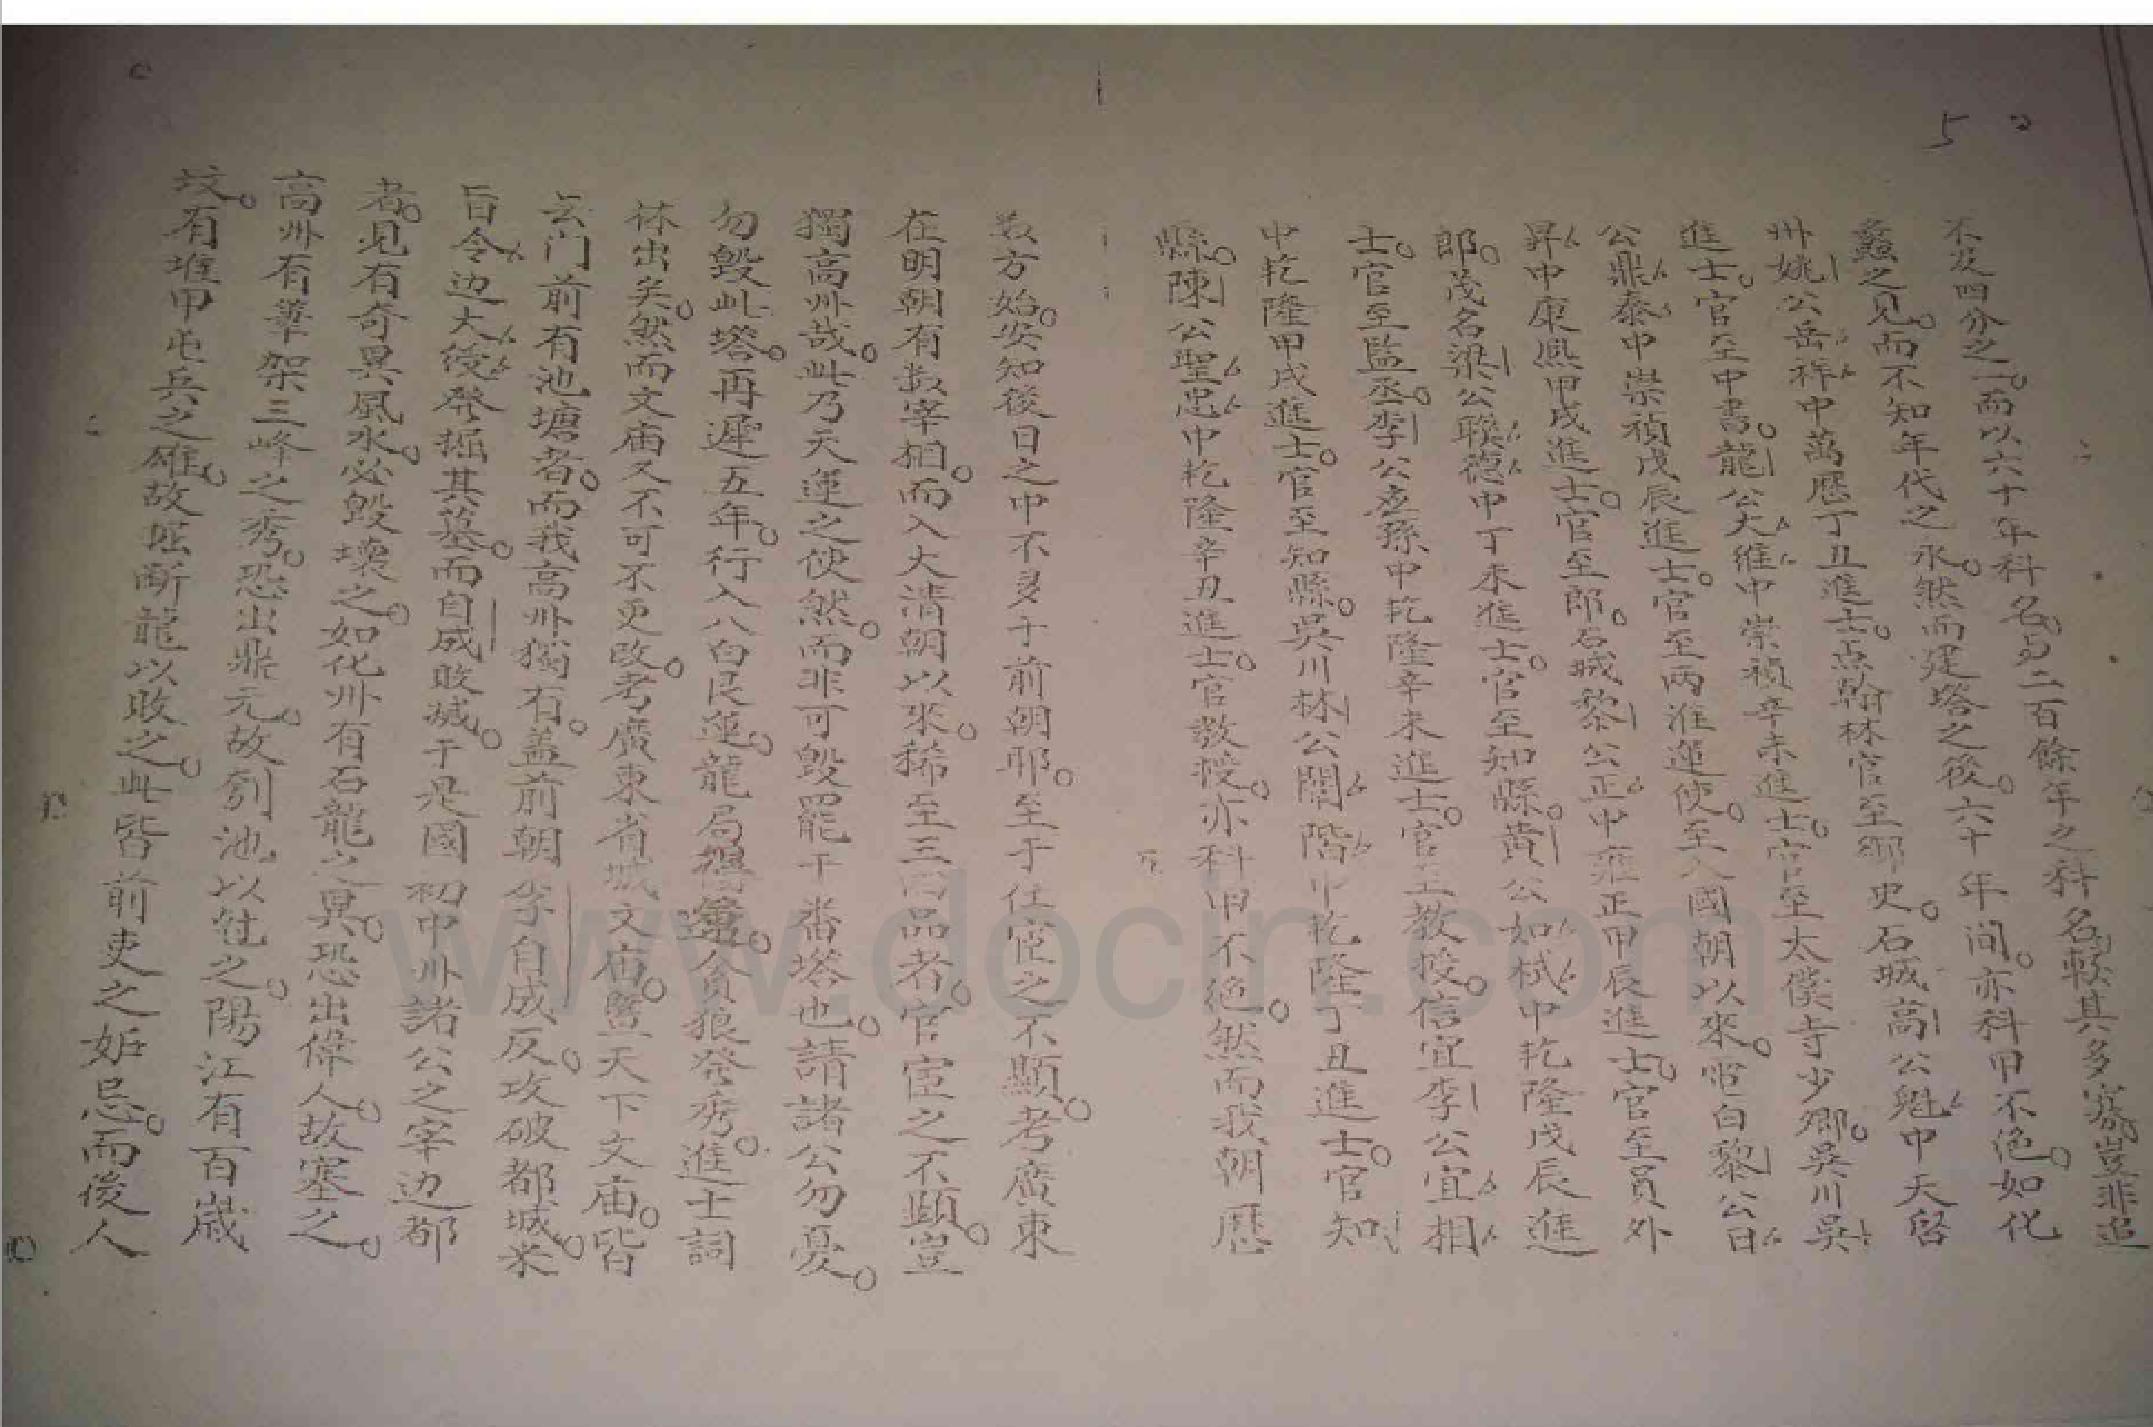 5
不及四分之一而以六十年科名與二百餘年之科名較其多寡豈非退
蠡之見而不知年代之永然而建塔之後六十年间亦科甲不绝如化
州姚公岳祥中萬歷丁丑進士点翰林官至御史石城高公魁中天啓
進士官至中書龍公大維中崇禎辛未進士官至太僕寺少卿吳川吳
公鼎泰中崇禎戊辰進士官至两淮運使至入國朝以來電白黎公日
昇中康熙甲戌進士官至郎石城黎公正中雍正甲辰進士官至員外
郎茂名梁公聯德中丁未進士官至知縣黄公如栻中乾隆戊辰進
士官至監丞李公彦孫中乾隆辛未進士官至教授信宜李公宜相
中乾隆甲戌進士官至知縣吳川林公闇階中乾隆丁丑進士官知
縣陳公聖忠中乾隆辛丑進士官教授亦科甲不绝然而我朝歷
数方始安知後日之中不多于前朝耶至于仕宦之不顯考廣東
在明朝有数宰相而入大清朝以來稀至三四品者官宦之不顯豈
獨高州哉此乃天運之使然而非可毀罷于番塔也請諸公勿憂
勿毀此塔再遲五年行入八白艮運龍局貪狼發秀進士詞
林出矣然而文庙又不可不更改考廣東省城文庙暨天下文庙皆
云门前有池塘者而我高州獨右盖前朝李自成反攻破都城米
旨令边大綬發掘其墓而自成敗滅于是國初中州諸公之宰边都
者見有奇異風水必毀壞之如化州有石龍之異恐出偉人故塞之
高州有筆架三峰之秀恐出鼎元故列池以性之陽江有百嵗
坟有堆甲屯兵之雄故掘断龍以敗之此皆前吏之妒忌而後人
www.docin.com